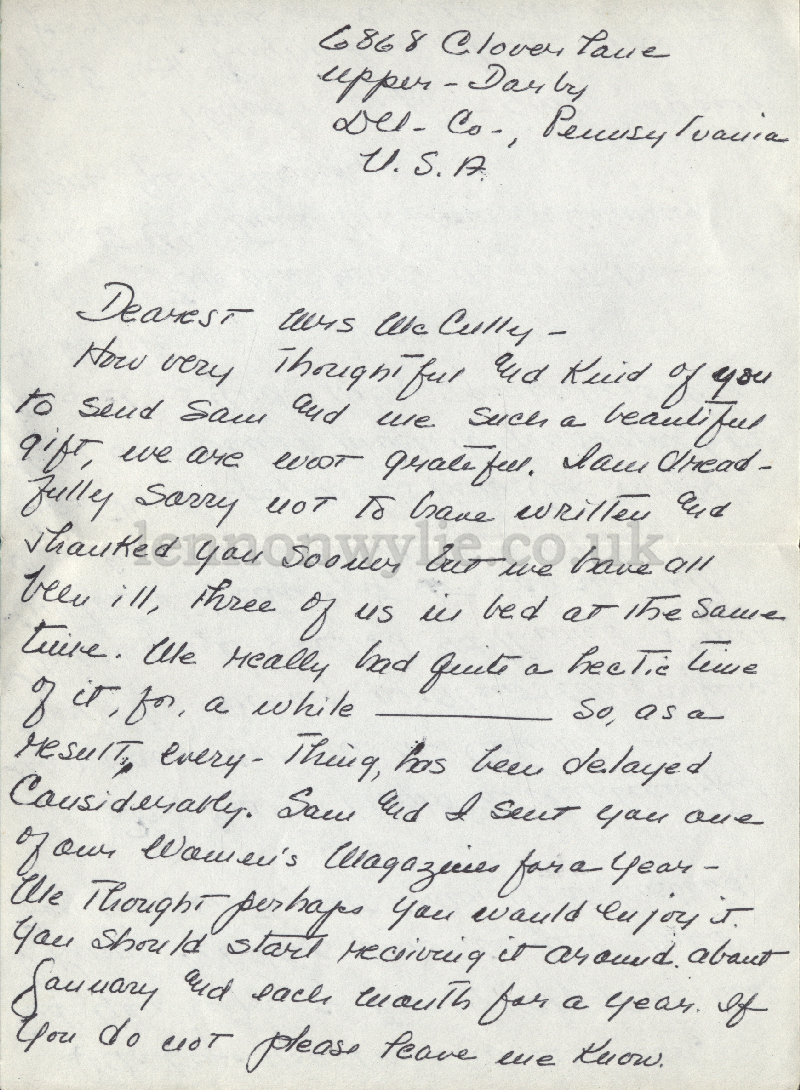 6868 Clover Lane
Upper-Darby
Del-Co-, Pennsylvania
U.S.A.
Dearest Mrs McCully-
How very Thoughtful and Kind of you
To send Sam and me such a beautiful
gift, we are most grateful. I am dread-
fully sorry not To have written and
Thanked you sooner but we have all
been ill, Three of us in bed at The same
time. We really had quite a hectic time
of it, for, a while ——— so, as a
result, every-Thing, has been delayed
Considerably. Sam and I sent you one
of our Women's Magazines for a year-
We Thought perhaps you would enjoy it.
You should start receiving it around about
January and each month for a year. If
you do not please leave me Know.
lennonwylie.co.uk